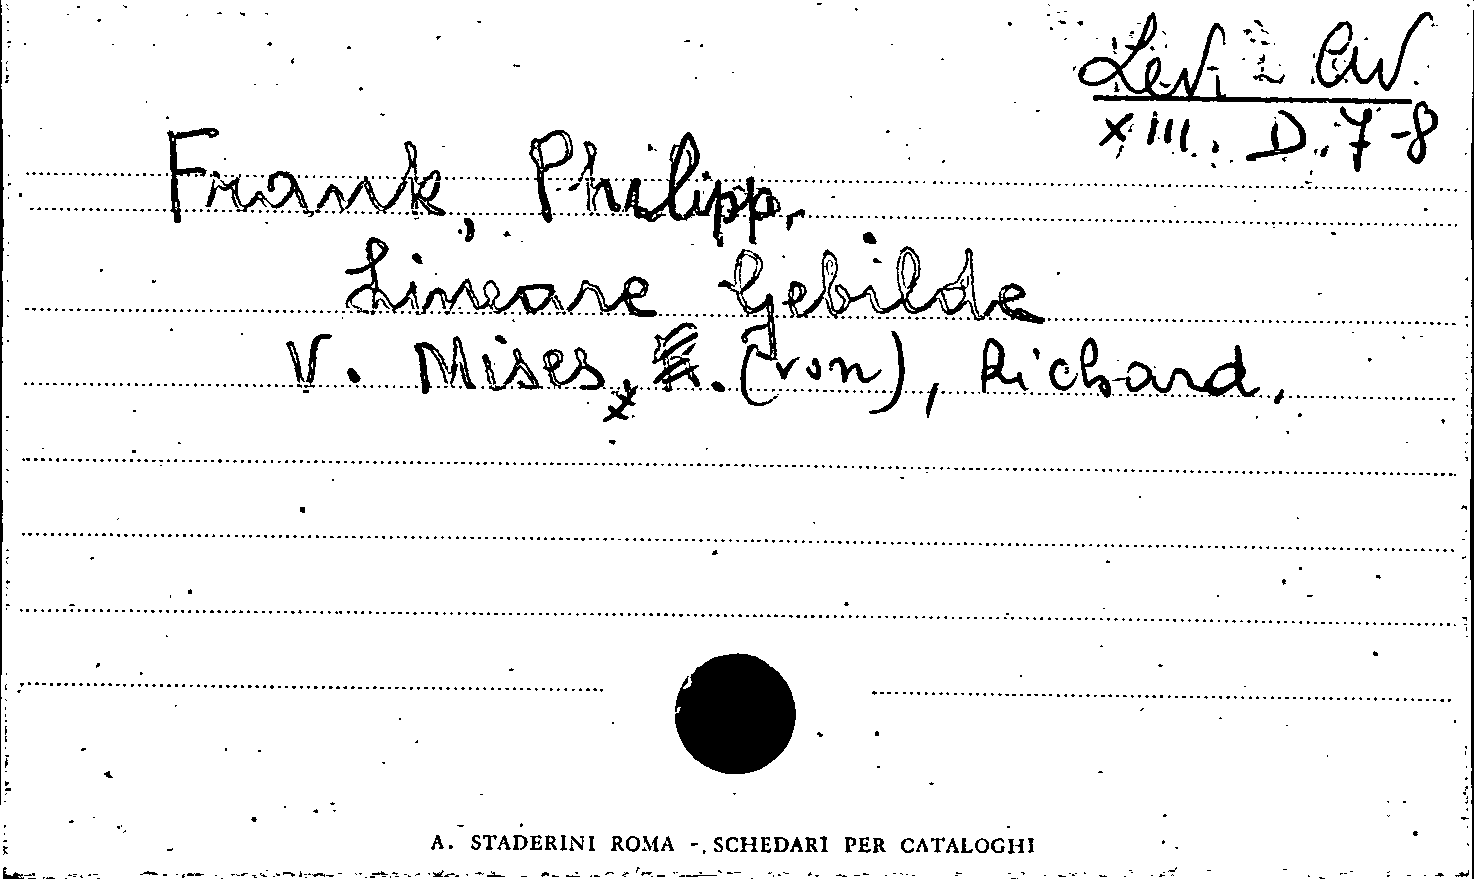 Levi Civ.
XIII. D. 7-8
Frank, Philipp,
Lineare Gebilde
V. Mises, (von), Richard,
A. STADERINI ROMA - SCHEDARI PER CATALOGHI